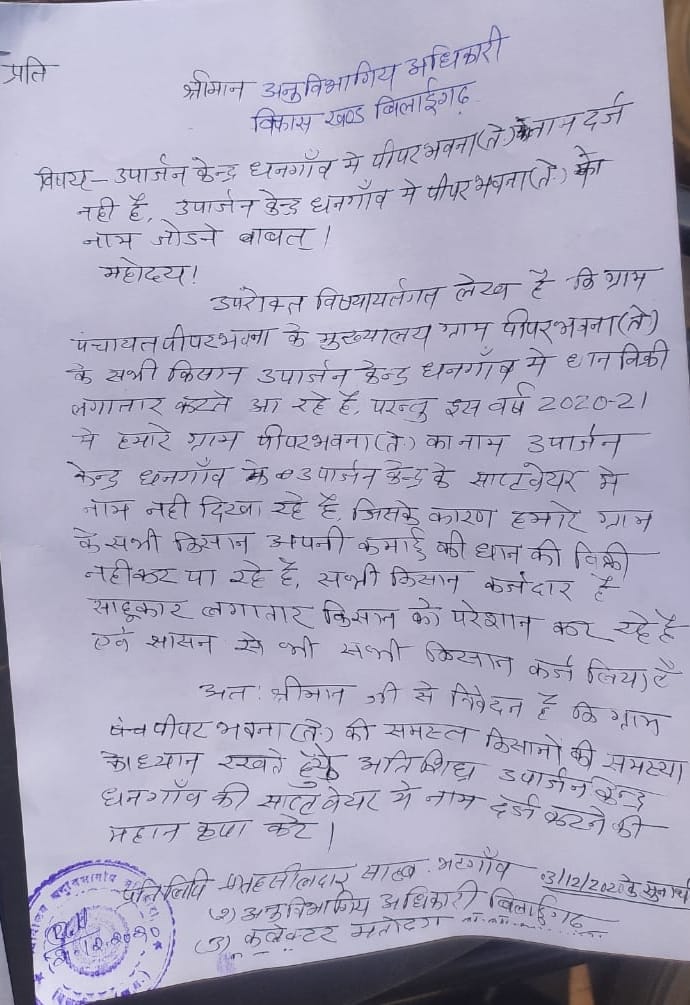 प्रति
श्रीमान अनुविभागिय अधिकारी
विकास खण्ड बिलाईगढ़
विषय - उपार्जन केन्द्र धनगाँव मे पीपरभवना(ते) नाम दर्ज
नही है, उपार्जन केन्द्र धनगाँव मे पीपरभवना(ते.) का
नाम जोडने बाबत् ।
महोदय!
उपरोक्त लेख है कि ग्राम
पंचायत पीपरभवना के मुख्यालय ग्राम पीपरभवना(ते)
के सभी किसान उपार्जन केन्द्र धनगाँव मे धान बिक्री
लगातार करते आ रहे है, परन्तु इस वर्ष 2020-21
मे हमारे ग्राम पीपरभवना(ते) का नाम उपार्जन
केन्द्र धनगाँव के उपार्जन केन्द्र के साफ्टवेयर मे
नाम नही दिखा रहे है, जिसके कारण हमारे ग्राम
के सभी किसान अपनी कमाई की धान की बिक्री
नही कर पा रहे है, सभी किसान कर्जदार है
साहूकार लगातार किसान को परेशान कर रहे है
एवं शासन से भी सभी किसान कर्ज लिया है
अतः श्रीमान जी से निवेदन है कि ग्राम
पीपरभवना(ते.) की समस्त किसानो की समस्या
को ध्यान रखते हुये अतिशिघ्र उपार्जन केन्द्र
धनगाँव की साफ्टवेयर मे नाम दर्ज करने की
महान कृपा करे ।
प्रतिलिपि तहसीलदार साहब भटगाँव 03/12/2020 के
2) अनुविभागीय अधिकारी बिलाईगढ़
3) कलेक्टर महोदय